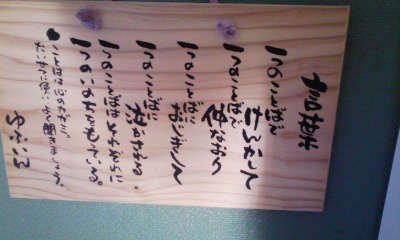 一つのことばで
けんかして
一つのことばで
仲なおり
一つのことばに
おじぎして
一つのことばに
泣かされる
一つのことばは それぞれに
一つのいのちをもっている。
●ことばは心のかがみ。
だいじに使い、よく聞きましょう。